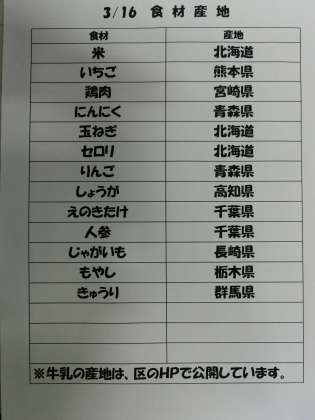 3/16 食材産地
食材 産地
米 北海道
いちご 熊本県
鶏肉 宮崎県
にんにく 青森県
玉ねぎ 北海道
セロリ 北海道
りんご 青森県
しょうが 高知県
えのきたけ 千葉県
人参 千葉県
じゃがいも 長崎県
もやし 栃木県
きゅうり 群馬県
※牛乳の産地は、区のHPで公開しています。